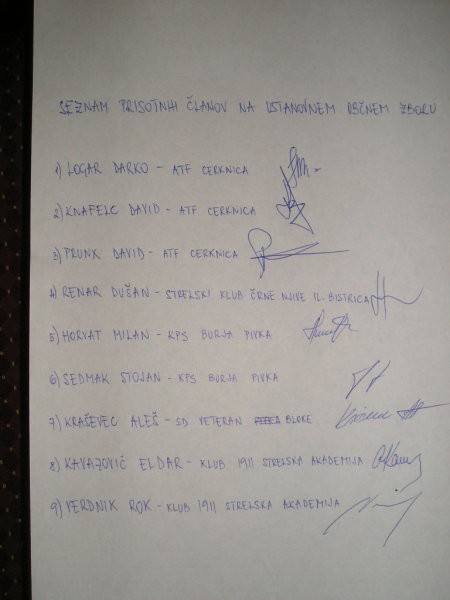 SEZNAM PRISOTNIH ČLANOV NA USTANOVNEM OBČNEM ZBORU
1) LOGAR DARKO - ATF CERKNICA
2) KNAFELC DAVID - ATF CERKNICA
3) PRUNK DAVID - ATF CERKNICA
4) RENAR DUŠAN - STRELSKI KLUB ČRNE NJIVE IL. BISTRICA
5) HORVAT MILAN - KPS BURJA PIVKA
6) SEDMAK STOJAN - KPS BURJA PIVKA
7) KRAŠEVEC ALEŠ - SD VETERAN BLOKE
8) KAVAZOVIĆ ELDAR - KLUB 1911 STRELSKA AKADEMIJA
9) VERDNIK ROK - KLUB 1911 STRELSKA AKADEMIJA